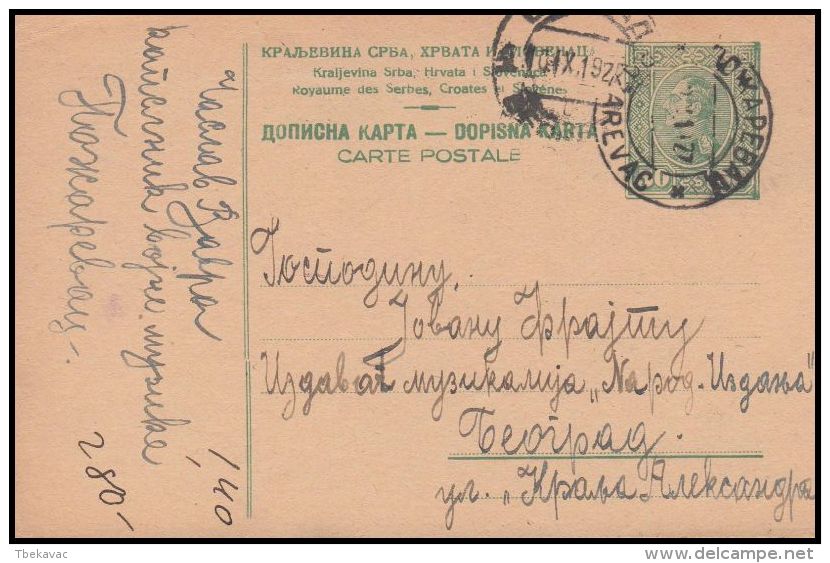 КРАЉЕВИНА СРБА, ХРВАТА И СЛОВЕНАЦА
Kraljevina Srba, Hrvata i Slovenaca
Royaume des Serbes, Croates et Slovènes
ДОПИСНА КАРТА — DOPISNA KARTA
CARTE POSTALE
ПОЖАРЕВАЦ
AREVAC
IX.192
Господину,
Јовану Фрајту
Издавач музикалија „Народ. Издања"
Београд.
ул. „Краља Александра
Часлав
капелник војне музике
Пожаревац.
140
280
Tbekavac
delcampe.net